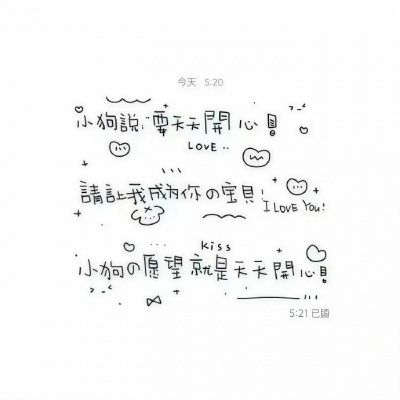 今天 5:20
小狗說："要天天開心!
LOVE ..
請讓我成為你の宝貝!
I LOVE YOU!
kiss
小狗の愿望就是天天開心!
5:21 已讀